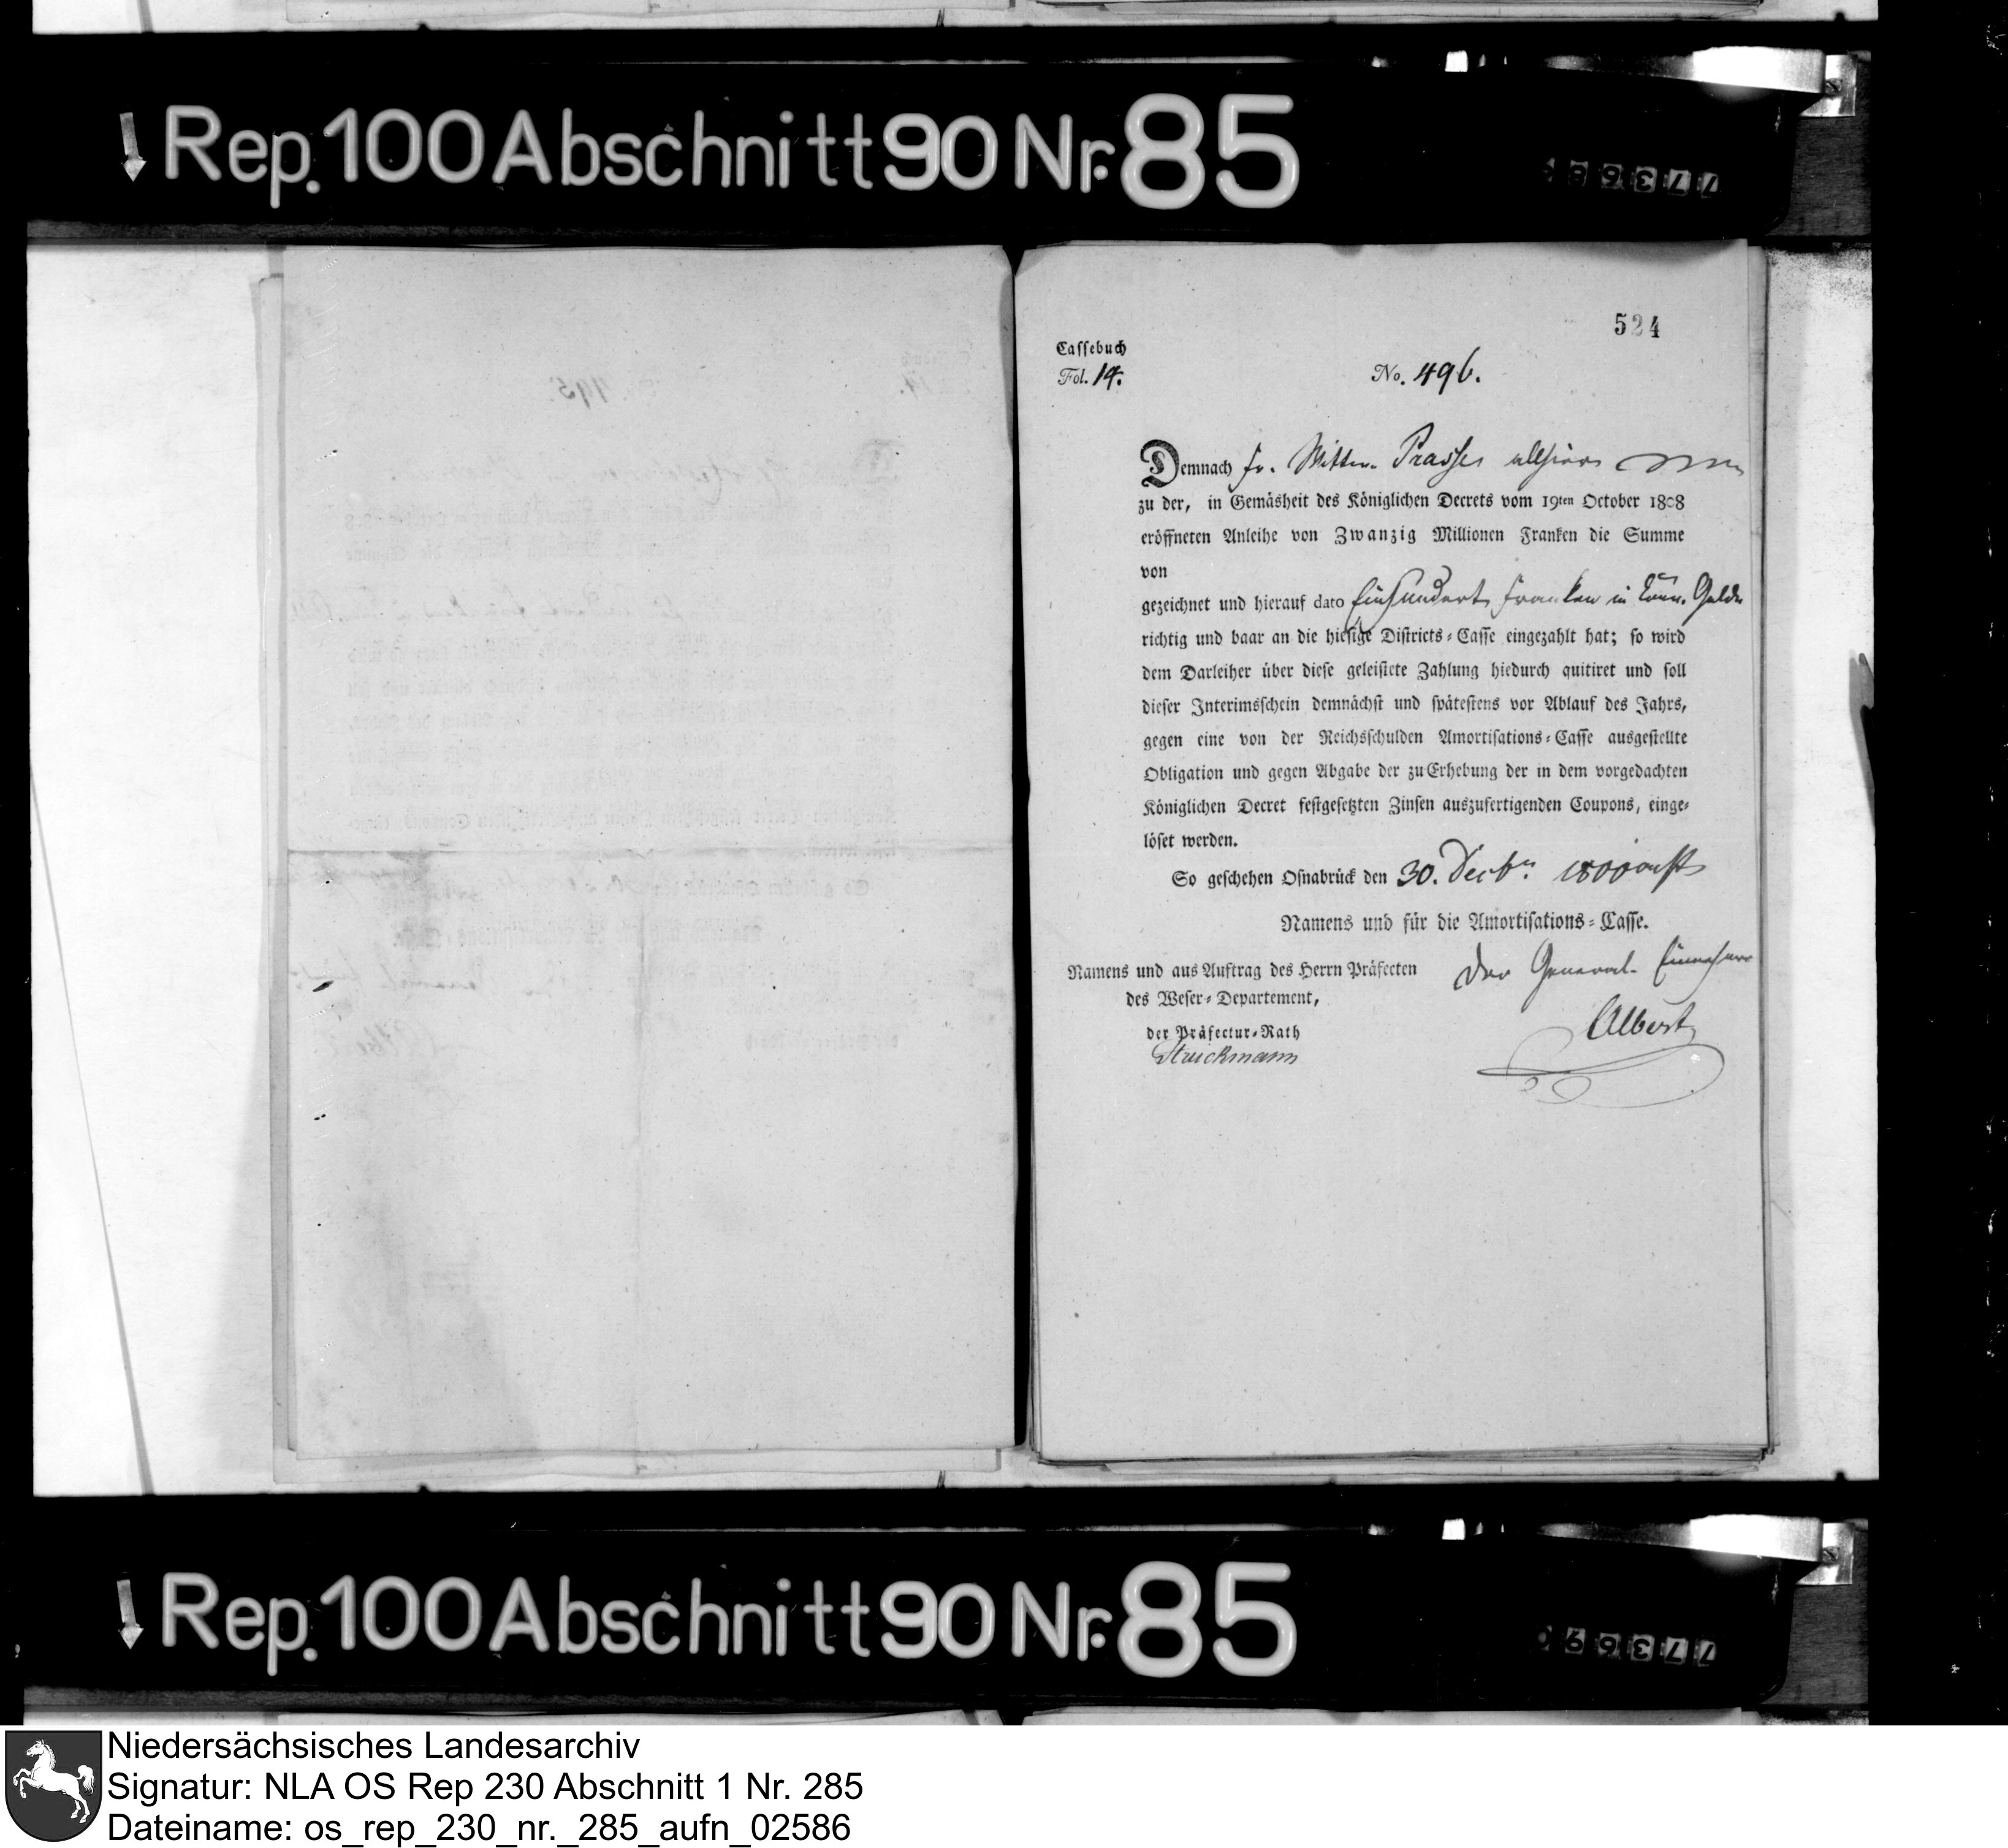 Rep. 100 Abschnitt 90 Nr. 85
524
Cassebuch
Fol. 14.
No. 496.
Demnach fr. Wittwe Prasse allhier
zu der, in Gemäsheit des Königlichen Decrets vom 19ten October 1808
eröffneten Anleihe von Zwanzig Millionen Franken die Summe
von
gezeichnet und hierauf dato Einhundert Franken in Conv. Gelde
richtig und baar an die hiesige Districts-Casse eingezahlt hat; so wird
dem Darleiher über diese geleistete Zahlung hiedurch quitiret und soll
dieser Interimsschein demnächst und spätestens vor Ablauf des Jahrs,
gegen eine von der Reichsschulden Amortisations-Casse ausgestellte
Obligation und gegen Abgabe der zu Erhebung der in dem vorgedachten
Königlichen Decret festgesetzten Zinsen auszufertigenden Coupons, einge-
löset werden.
So geschehen Osnabrück den 30. Decbr. 1800 acht
Namens und für die Amortisations-Casse.
Namens und aus Auftrag des Herrn Präfecten
des Weser-Departement,
der Präfectur-Rath
Struckmann
Der General-Einnehmer
Albert
Rep. 100 Abschnitt 90 Nr. 85
Niedersächsisches Landesarchiv
Signatur: NLA OS Rep 230 Abschnitt 1 Nr. 285
Dateiname: os_rep_230_nr._285_aufn_02586